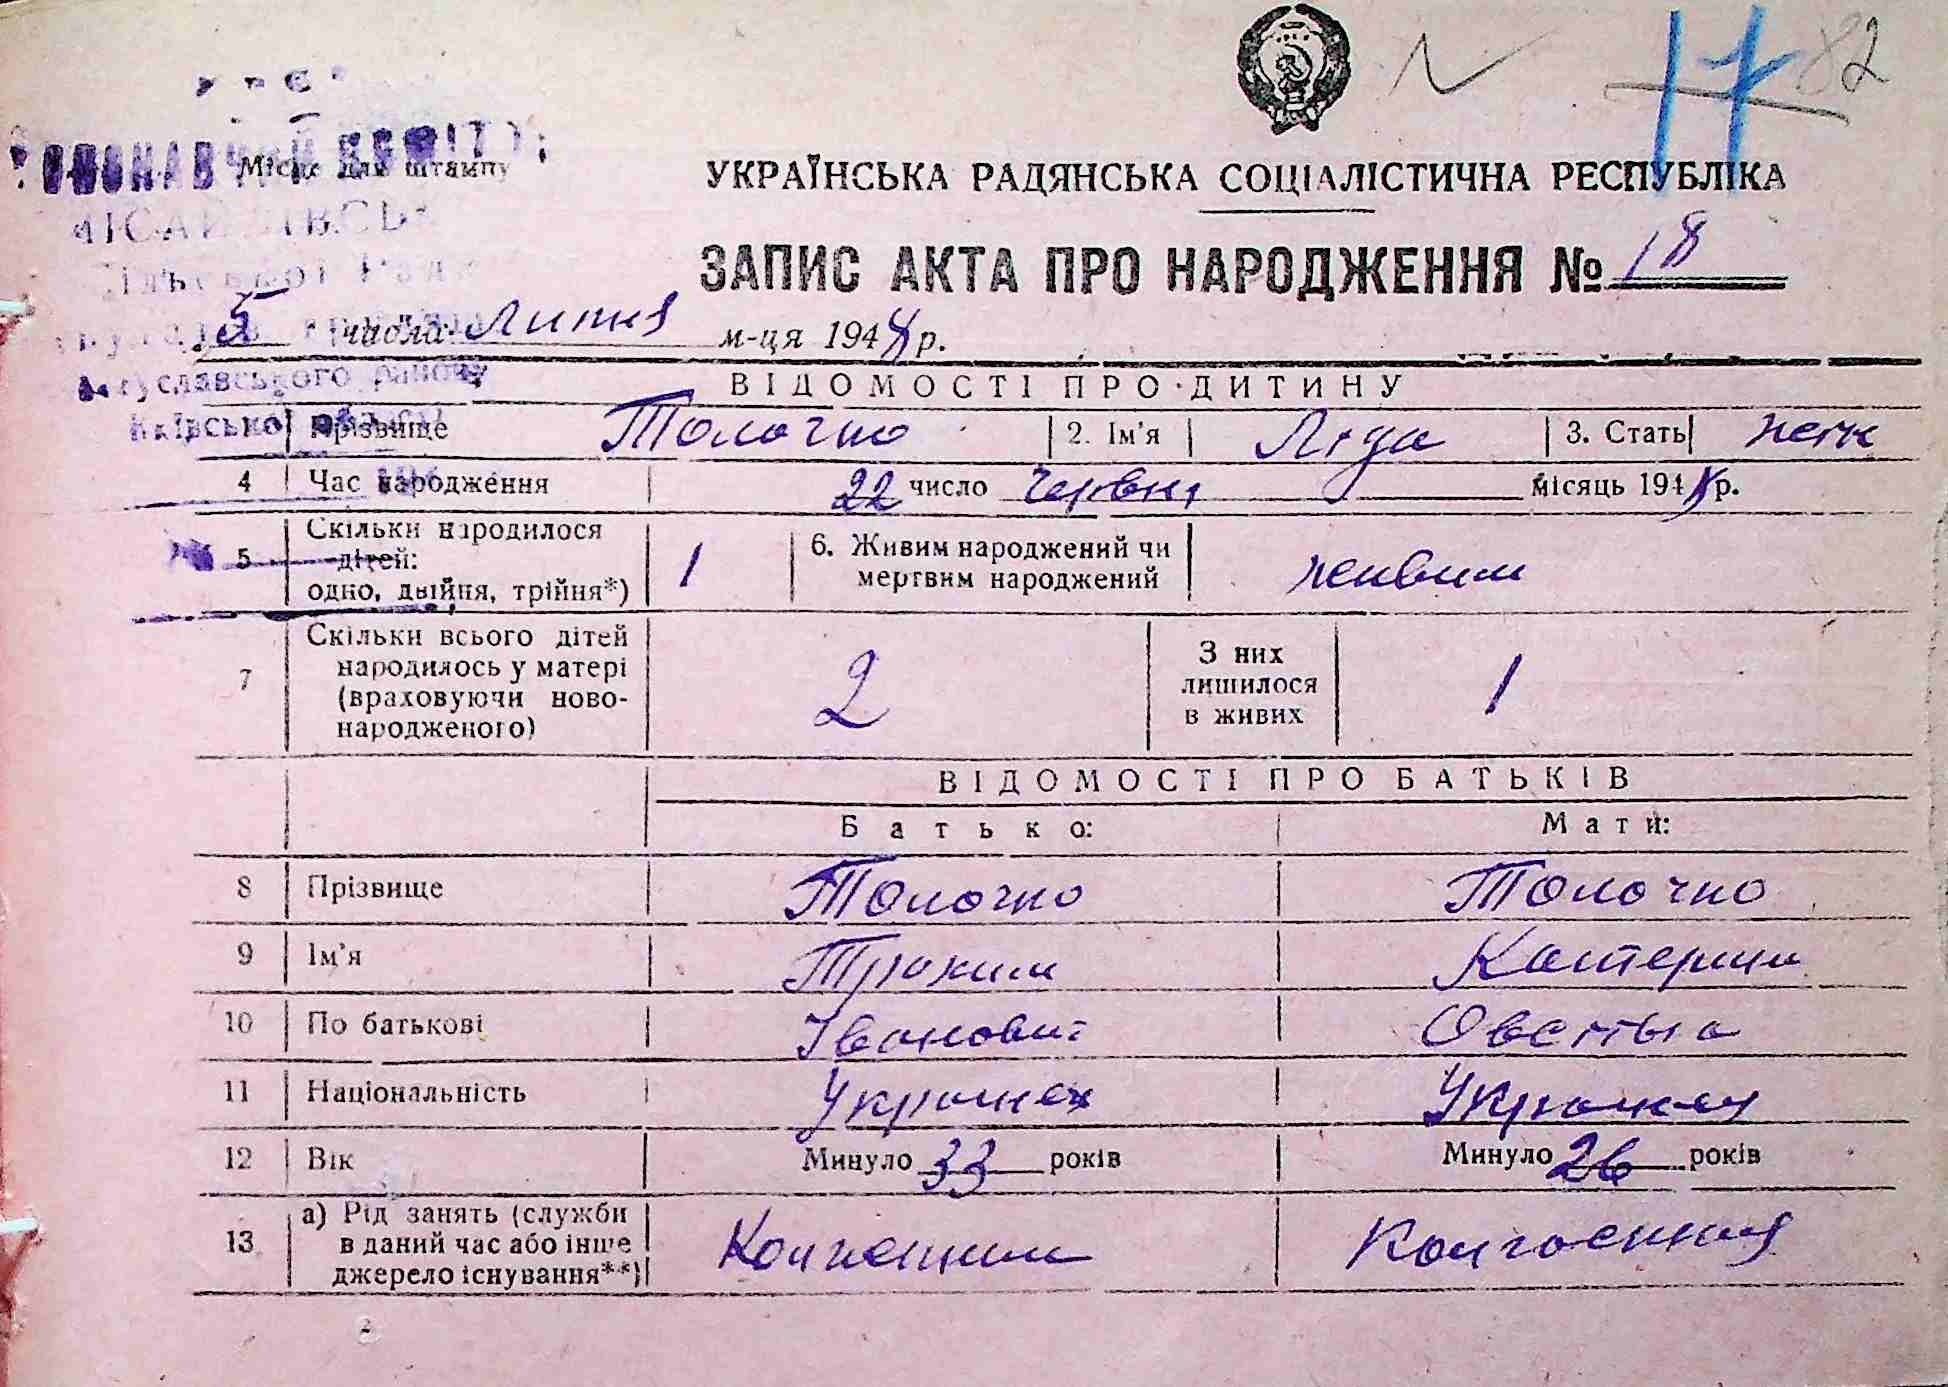 82
Місце для штампу
УКРАЇНСЬКА РАДЯНСЬКА СОЦІАЛІСТИЧНА РЕСПУБЛІКА
ЗАПИС АКТА ПРО НАРОДЖЕННЯ № 18
5 числа Липня м-ця 1948 р.
Богуславського району
Київської
ВІДОМОСТІ ПРО ДИТИНУ
1 Прізвище Толочко 2. Ім'я Ліда 3. Стать жін
4 Час народження 22 число Червня місяць 1948 р.
5 Скільки народилося дітей: одно, двійня, трійня*) 1 6. Живим народжений чи мертвим народжений живим
7 Скільки всього дітей народилось у матері (враховуючи ново-народженого) 2 З них лишилося в живих 1
ВІДОМОСТІ ПРО БАТЬКІВ
Батько: Мати:
8 Прізвище Толочко Толочко
9 Ім'я Трохим Катерина
10 По батькові Іванович
11 Національність Українец Українка
12 Вік Минуло 33 років Минуло 26 років
13 а) Рід занять (служби в даний час або інше джерело існування**) Колгоспник Колгоспниця
2